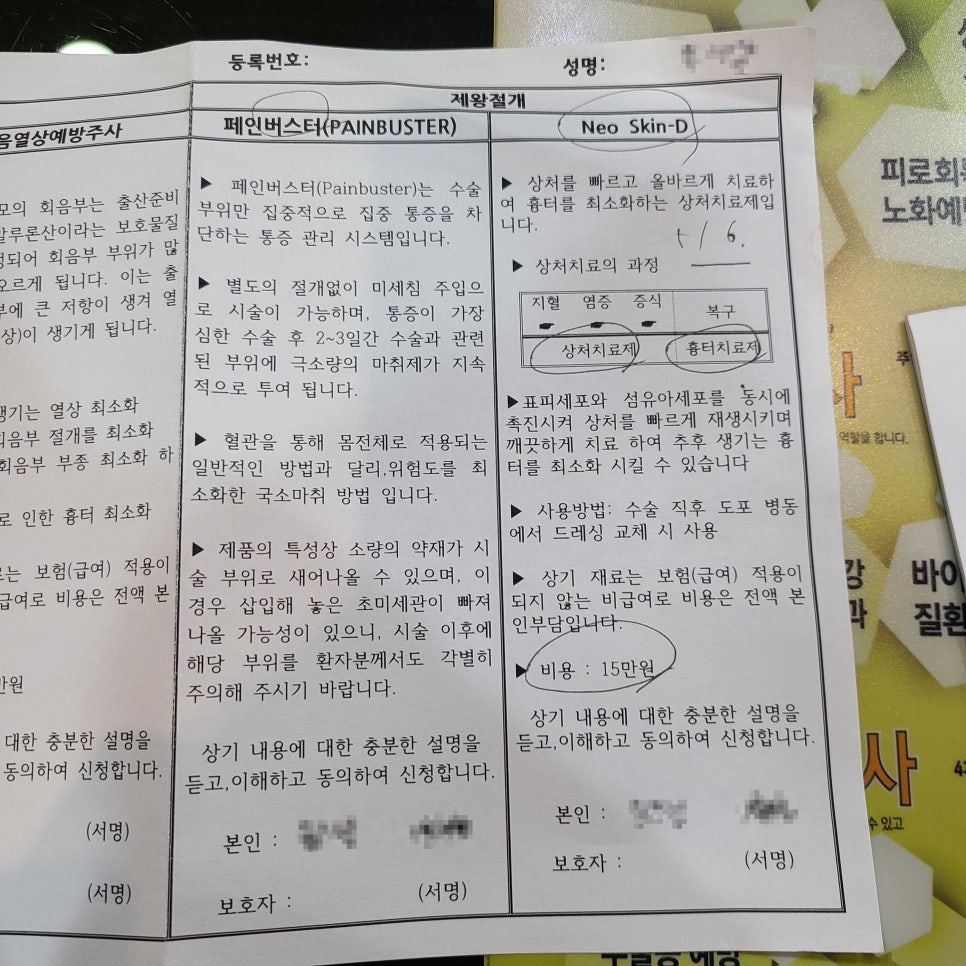 등록번호:
성명:
제왕절개
음열상예방주사
모의 회음부는 출산준비
알루론산이라는 보호물질
되어 회음부 부위가 많
오르게 됩니다. 이는 출
부에 큰 저항이 생겨 열
상)이 생기게 됩니다.
생기는 열상 최소화
회음부 절개를 최소화
회음부 부종 최소화 하
로 인한 흉터 최소화
료는 보험(급여) 적용이
급여로 비용은 전액 본
만원
대한 충분한 설명을
동의하여 신청합니다.
(서명)
(서명)
페인버스터(PAINBUSTER)
▶ 페인버스터(Painbuster)는 수술
부위만 집중적으로 집중 통증을 차
단하는 통증 관리 시스템입니다.
▶ 별도의 절개없이 미세침 주입으
로 시술이 가능하며, 통증이 가장
심한 수술 후 2~3일간 수술과 관련
된 부위에 극소량의 마취제가 지속
적으로 투여 됩니다.
▶ 혈관을 통해 몸전체로 적용되는
일반적인 방법과 달리,위험도를 최
소화한 국소마취 방법 입니다.
▶ 제품의 특성상 소량의 약재가 시
술 부위로 새어나올 수 있으며, 이
경우 삽입해 놓은 초미세관이 빠져
나올 가능성이 있으니, 시술 이후에
해당 부위를 환자분께서도 각별히
주의해 주시기 바랍니다.
상기 내용에 대한 충분한 설명을
듣고,이해하고 동의하여 신청합니다.
본인 :
보호자 : (서명)
Neo Skin-D
▶ 상처를 빠르고 올바르게 치료하
여 흉터를 최소화하는 상처치료제입
니다.
▶ 상처치료의 과정
지혈 염증 증식 복구
상처치료제 흉터치료제
▶표피세포와 섬유아세포를 동시에
촉진시켜 상처를 빠르게 재생시키며
깨끗하게 치료 하여 추후 생기는 흉
터를 최소화 시킬 수 있습니다
▶ 사용방법: 수술 직후 도포 병동
에서 드레싱 교체 시 사용
▶ 상기 재료는 보험(급여) 적용이
되지 않는 비급여로 비용은 전액 본
인부담입니다.
▶ 비용 : 15만원
상기 내용에 대한 충분한 설명을
듣고,이해하고 동의하여 신청합니다.
본인 :
보호자 : (서명)
피로회
노화예
사
역할을 합니다.
강
과
바이
질환
사
수 있고